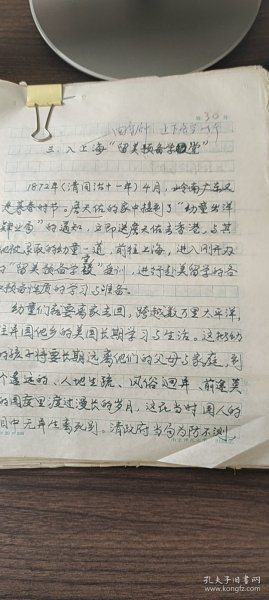 第30页
三、入上海"留美预备学堂"
1872年（清同治十一年）4月，岭南广东又
是暮春时节。詹天佑的家中接到了"幼童出洋
肄业局"的通知，立即送詹天佑去香港，与其
他被录取的幼童一道，前往上海，进入刚开办
的"留美预备学校"受训，进行赴美留学的各
预备性质的学习与准备。
幼童们都要离家去国，跨越数万里大平洋，
往异国他乡的美国长期学习与生活。这批幼
的孩子将要长期远离他们的父母与家庭，到
个遥远的、人地生疏、风俗迥异、前途莫
的国度里渡过漫长的岁月，这在当时国人的
目中无异生离死别。清政府当局为防不测
孔夫子旧书网